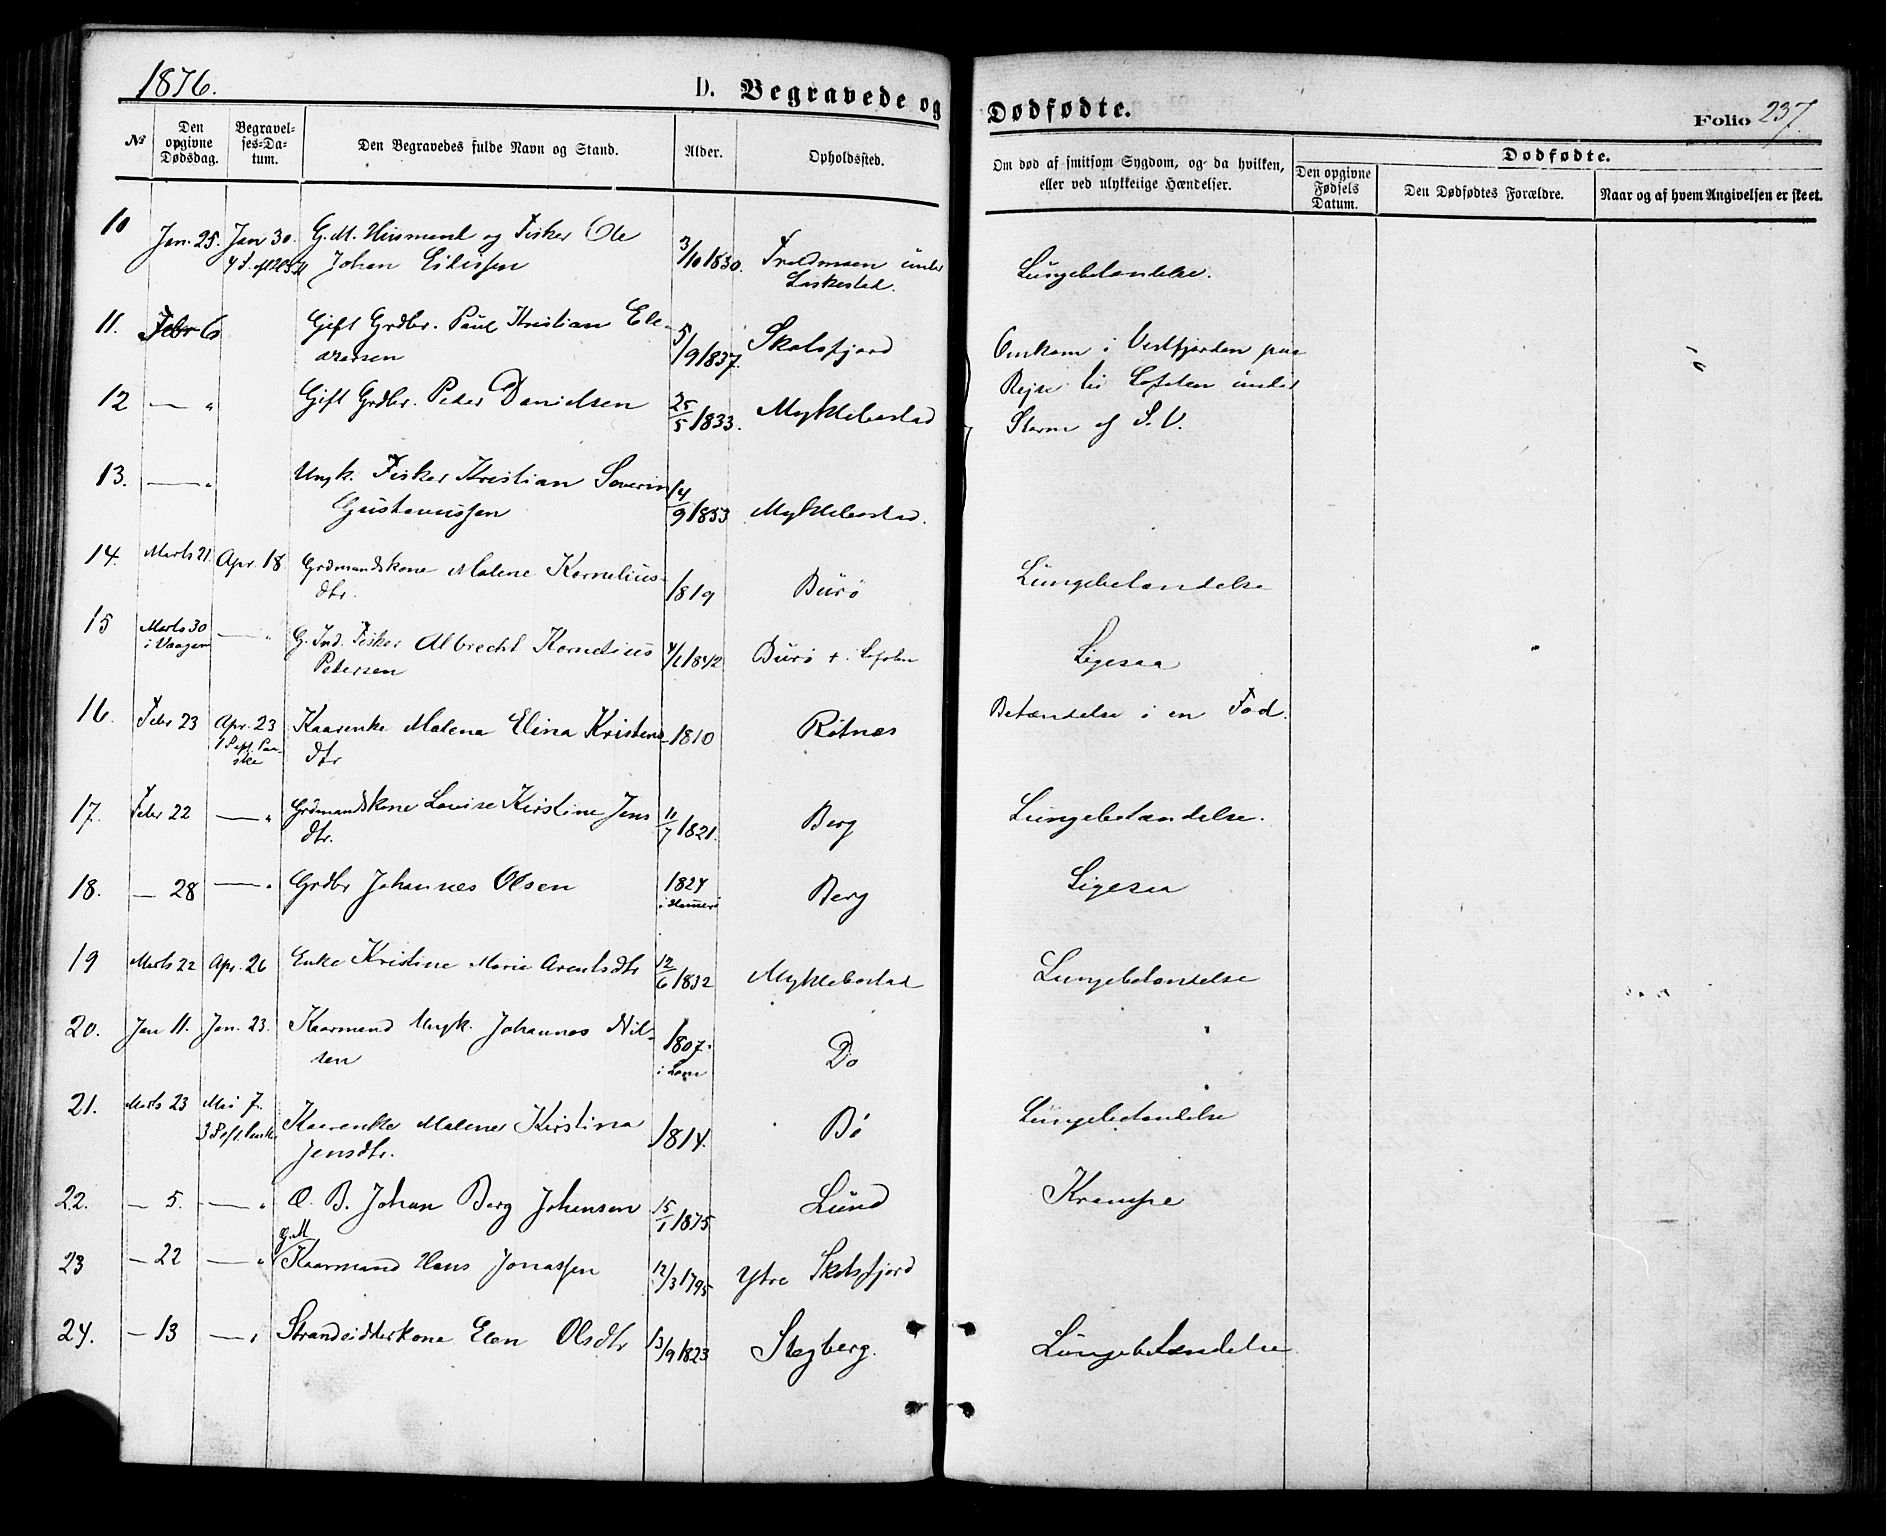 1876.
D. Begravede og Dødfødte.
Folio 237.
№
Den opgivne Dødsdag.
Begravelses-Datum.
Den Begravedes fulde Navn og Stand.
Alder.
Opholdssted.
Om død af smitsom Sygdom, og da hvilken, eller ved ulykkelige Hændelser.
Dødfødte.
Den opgivne Fødsels Datum.
Den Dødfødtes Forældre.
Naar og af hvem Angivelsen er skeet.
10 Jan. 25. Jan 30. G. M. Husmand og Fisker Ole 3/10 1830. under
Johan Lungebetændelse.
11. Febr 6 Gift Grdbr. Paul Kristian Ele- 5/9 1837. Skotsfjord Omkom i Vestfjorden paa
Rejse til Lofoten under
12 — " Gift Grdbr. Peder Danielsen 25/5 1833. Myklebostad Storm af S. V.
13. — " Ungk. Fisker Kristian Severin 14/9 1853 Myklebostad.
Gustavussen
14. Marts 21 Apr. 18 Grdmandskone Malene Kornelius- 1819 Burø Lungebetændelse
dtr.
15 Marts 30 — " G. Ind. Fisker Albrecht Kornelius 4/1 1842 Burø Lofoten Ligesaa
i Vaagan Petersen
16. Febr 23 Apr. 23 Kaarenke Malena Elina Kristens- 1810 Rotnes Betændelse i en Fod.
1 S. eft. Paaske dtr
17. Febr 22 — " Grdmandskone Lovise Kirstine Jens 11/7 1821. Berg Lungebetændelse.
dtr.
18. — 28 — " Grdbr Johannes Olsen 1824 Berg Ligesaa
i Hamerø
19 Marts 22 Apr. 26 Enke Kristine Marie Arentsdtr 12/6 1832 Myklebostad Lungebetændelse
20. Jan 11. Jan. 23. Kaarmand Ungk. Johannes Nil- 1807. Do
sen i Lom
21. Marts 23 Mai 7. Kaarenke Malene Kirstina 1814. Bø Lungebetændelse
3 S. eft. Paaske Jensdtr.
22. — 5. — " Æ. B. Johan Berg Johansen 15/1 1875 Lund Krampe
G. M
23 — 22 — " Kaarmand Hans Jonassen 12/3 1795 Ytre Skotsfjord
24. — 13 — " Strandsidderkone Elen Olsdtr 13/9 1823 Stegberg. Lungebetændelse